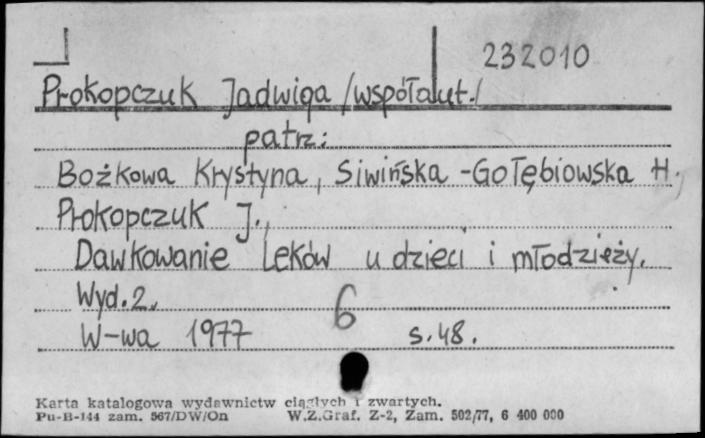 232010
Prokopczuk Jadwiga /współaut./
patrz:
Bożkowa Krystyna, Siwińska-Gołębiowska H.,
Prokopczuk J.,
Dawkowanie leków u dzieci i młodzieży.
Wyd.2.
6
W-wa 1977 s.48.
Karta katalogowa wydawnictw ciągłych i zwartych.
Pu-B-144 zam. 567/DW/On W.Z.Graf. Z-2, Zam. 502/77, 6 400 000